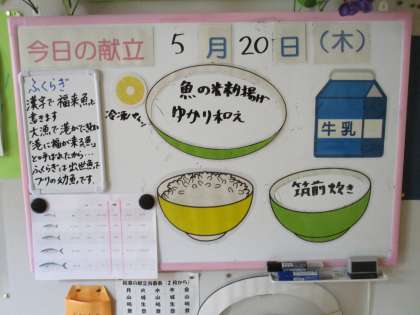 今日の献立 5月20日(木)
ふくらぎ
漢字で福来魚と
書きます
大漁で港が
港に福が来る魚
と呼ばれたから…
ふくらぎは出世魚で
ブリの幼魚です。
冷凍パイン
魚の米粉揚げ
ゆかり和え
牛乳
筑前炊き
月 火 水 木 金